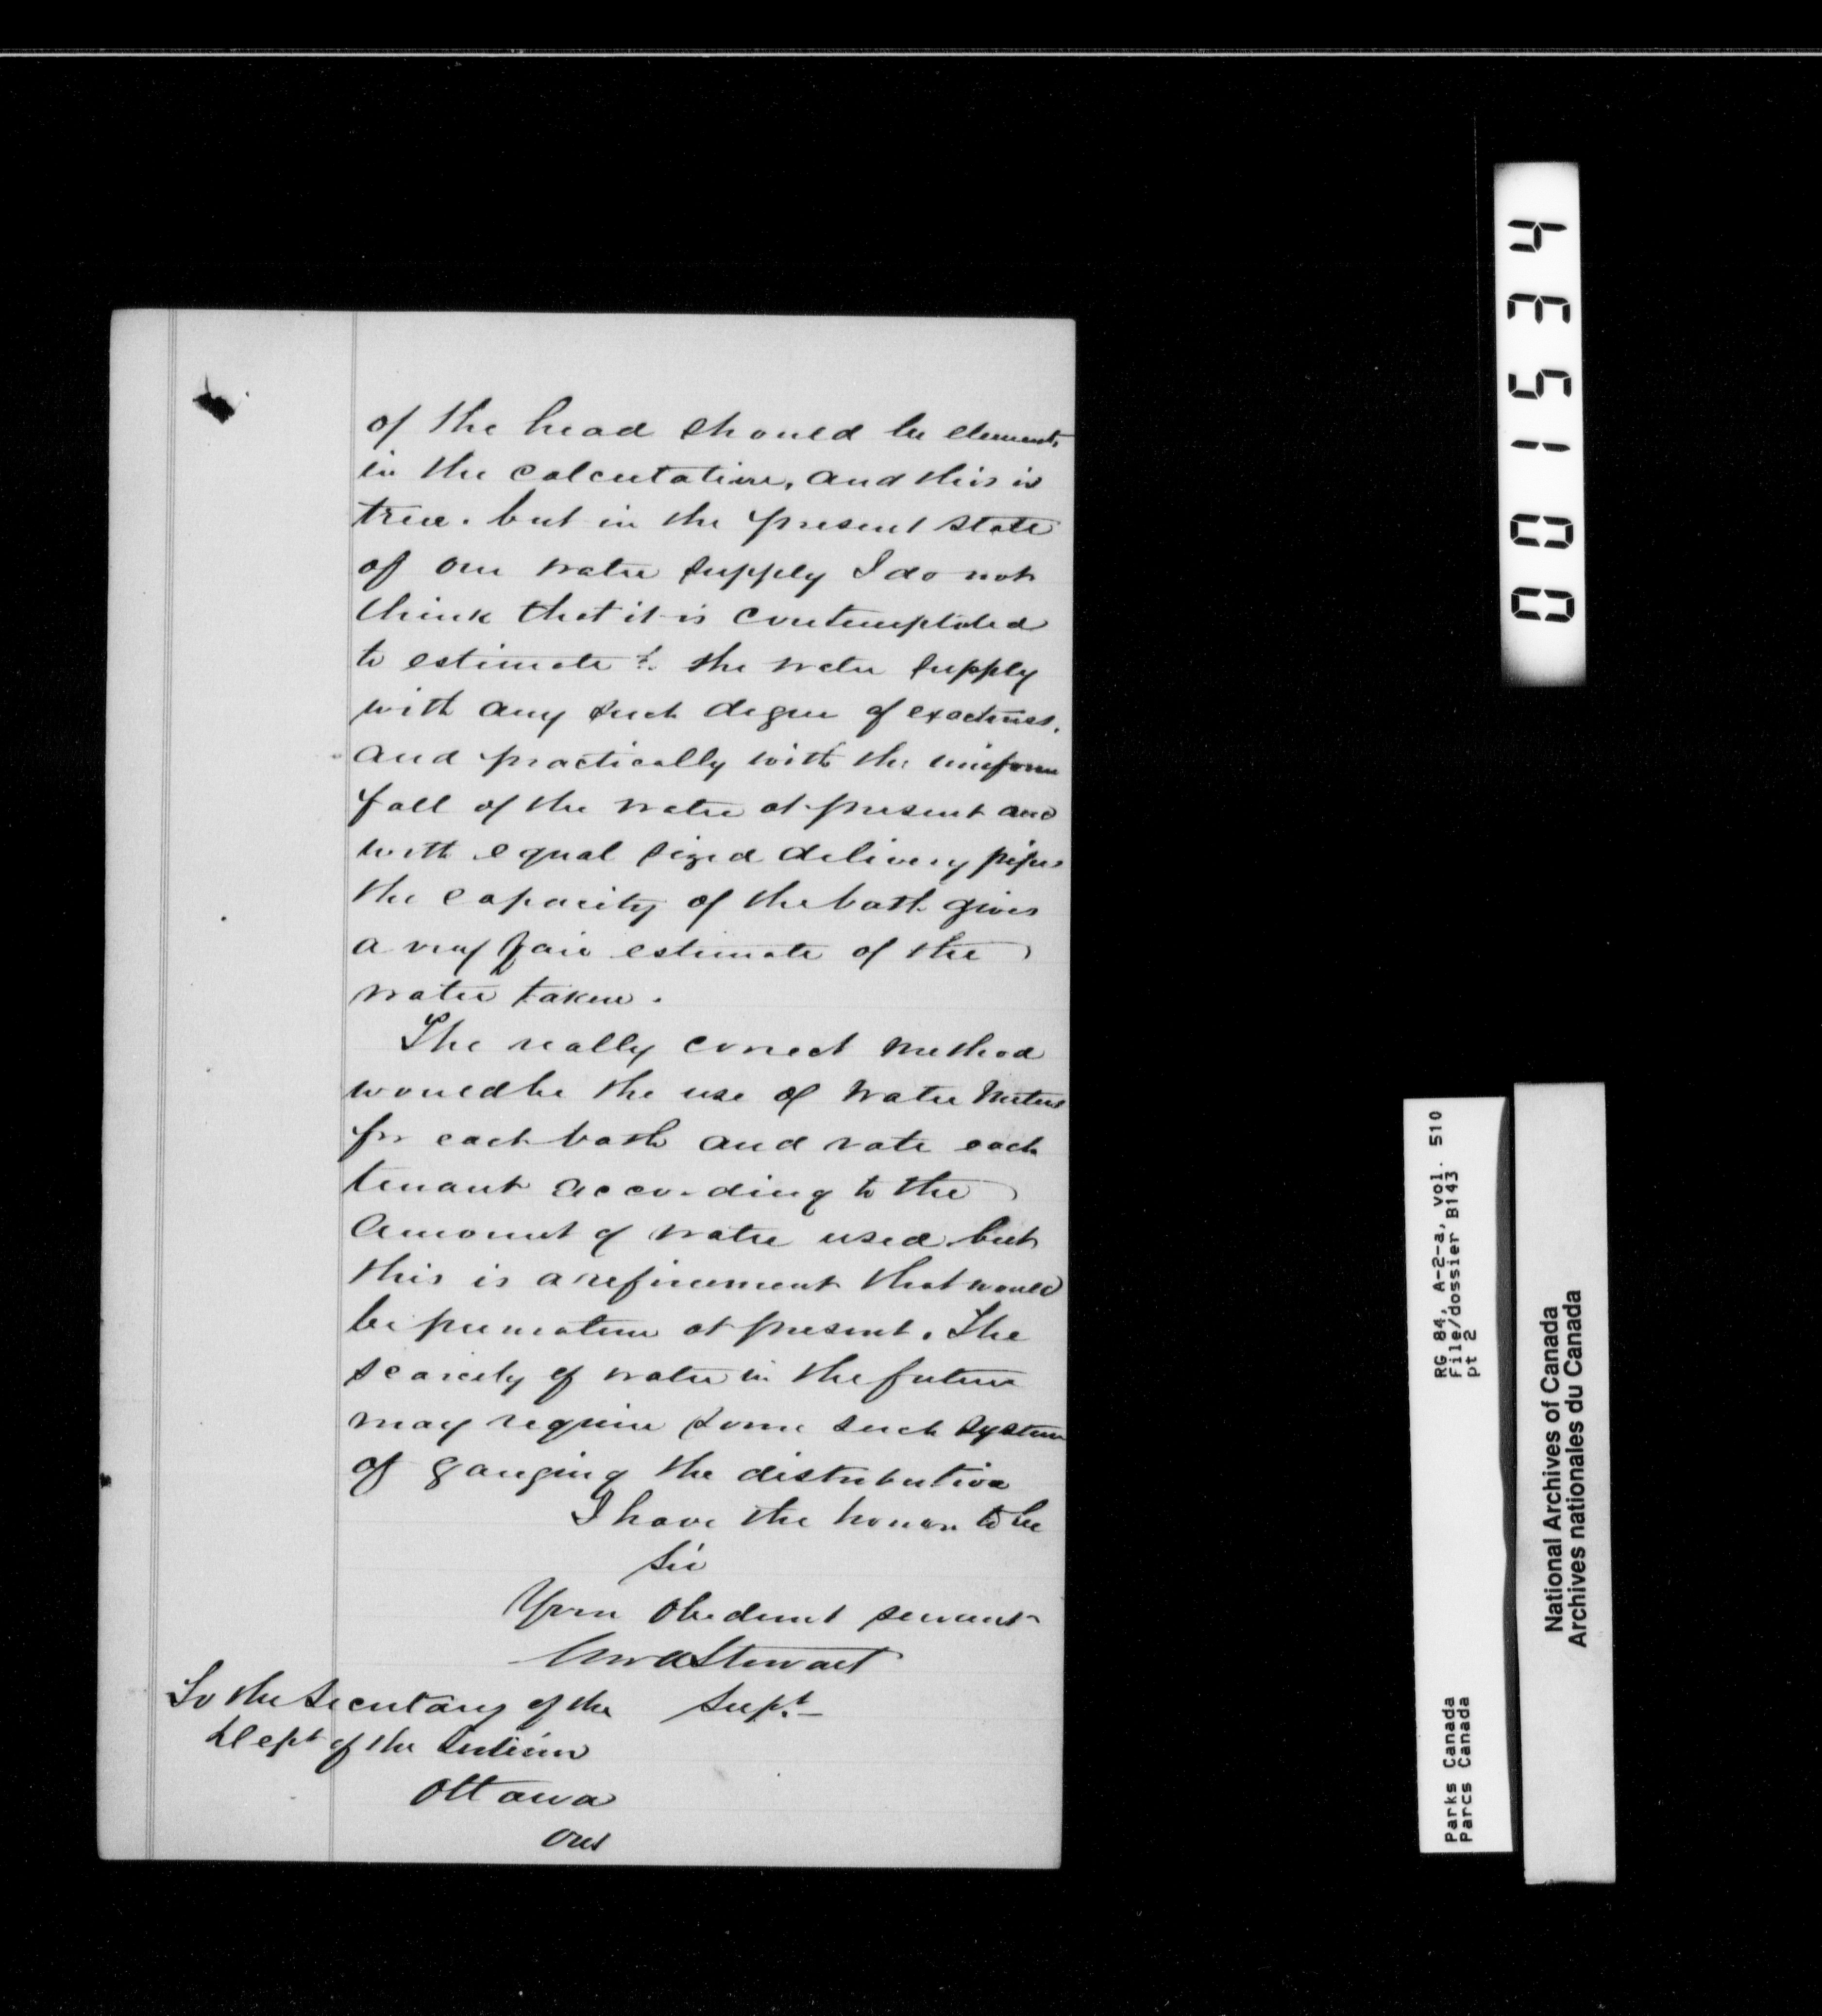 of the head should be elements
in the calculation, and this is
true. but in the present state
of our water supply I do not
think that it is contemplated
to estimate the water supply
with any such degree of exactness.
and practically with the uniform
fall of the water at present and
with equal sized delivery pipes
the capacity of the bath gives
a very fair estimate of the
water taken.
The really correct method
would be the use of water meters
for each bath and rate each
tenant according to the
amount of water used but
this is a refinement that would
be premature at present. The
scarcity of water in the future
may require some such system
of gauging the distribution
I have the honor to be
Sir
Your obedient servant
Stewart
Supt
To the Secretary of the
Dept of the Interior
Ottawa
Ont
001534
RG 84, A-2-a, vol. 510
File/dossier B143
pt 2
Parks Canada
Parcs Canada
National Archives of Canada
Archives nationales du Canada